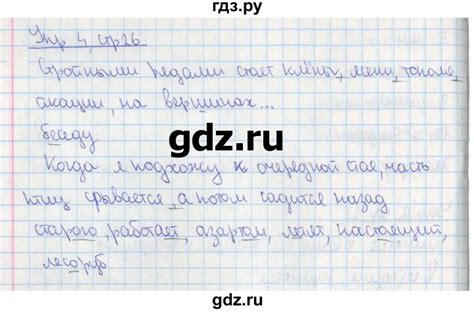 гдз.ру
Упр 4, стр 26
Стройными рядами стоят клёны, ясени, тополя,
акации, на вершинах...
беседу
gdz.ru
Когда я подхожу к очередной стае, часть
птиц срывается, а потом садится назад
старого, работает, азартом, летят, настоящий,
лесоруб
gdz.ru